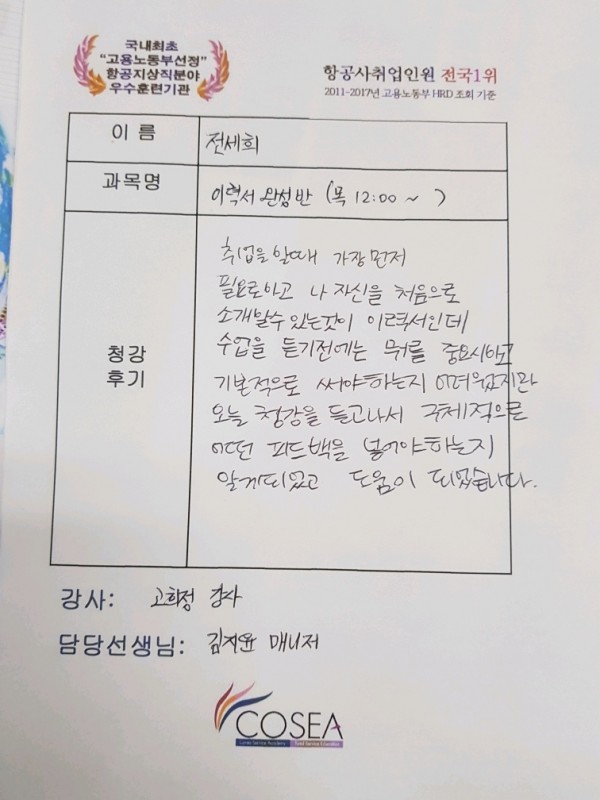 국내최초
"고용노동부선정"
항공지상직분야
우수훈련기관
항공사취업인원 전국1위
2011-2017년 고용노동부 HRD 조회 기준
이 름
전세희
과목명
이력서 완성반 (목 12:00 ~ )
청강
후기
취업을 할때 가장먼저
필요로하고 나 자신을 처음으로
소개할수있는것이 이력서인데
수업을 듣기전에는 뭐를 중요시하고
기본적으로 써야하는지 어려웠지만
오늘 청강을 듣고나서 구체적으로
어떤 피드백을 넣어야하는지
알게되었고 도움이 되었습니다.
강사: 고희정 강사
담당선생님: 김지윤 매니저
COSEA